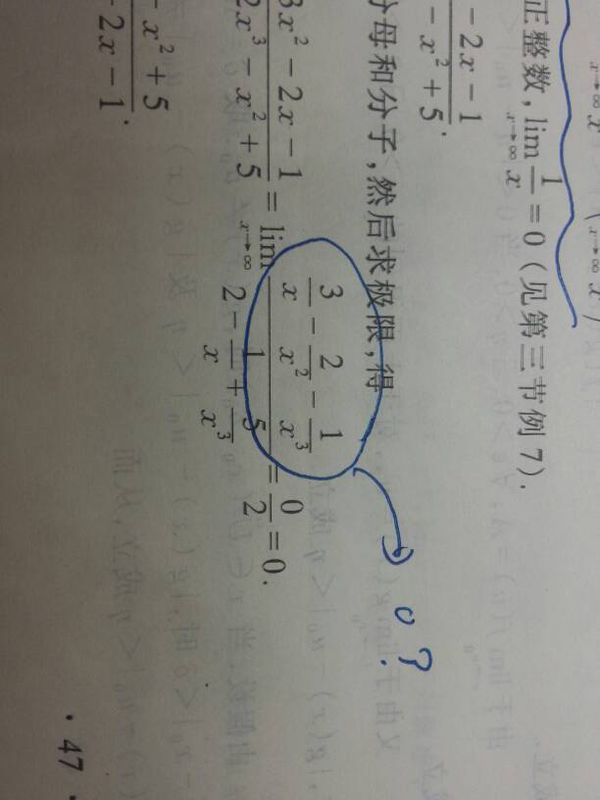 x→∞ x x→∞ x
正整数, lim x→∞ 1/x = 0 (见第三节例 7).
- 2x - 1 / - x² + 5 .
分母和分子, 然后求极限, 得
3x² - 2x - 1 / 2x³ - x² + 5 = lim x→∞ (3/x - 2/x² - 1/x³) / (2 - 1/x + 5/x³) = 0/2 = 0.
0 ?
- x² + 5 / - 2x - 1 .
· 47 ·